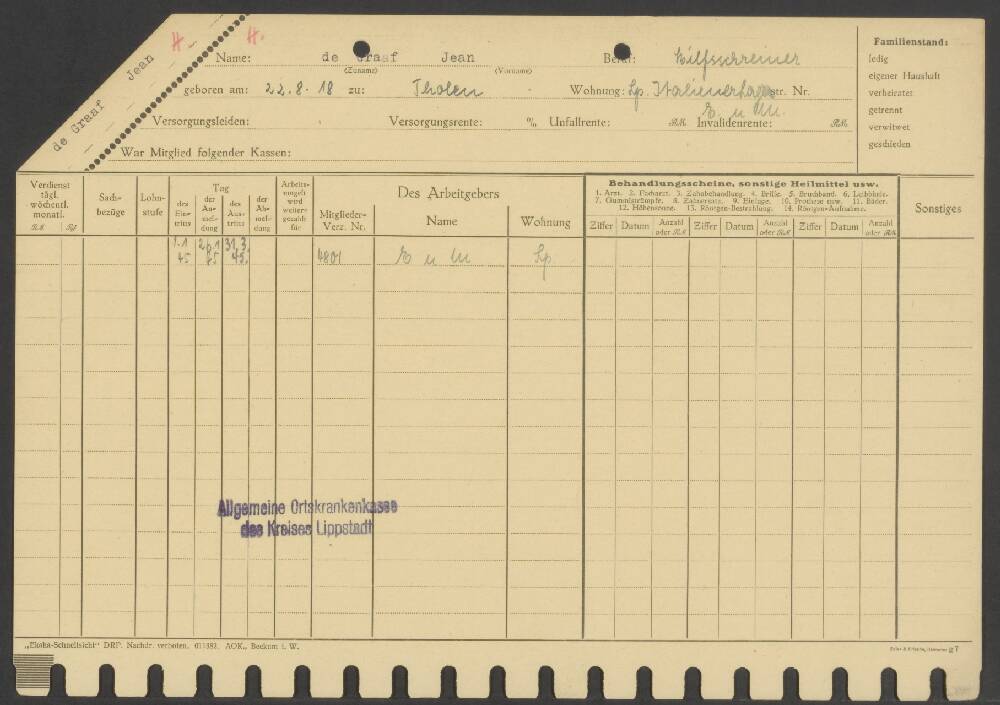 H. H.
de Graaf Jean
Name: de Graaf Jean Beruf: Hilfsschreiner
(Zuname) (Vorname)
geboren am: 22.8.18 zu: Tholen Wohnung: Lp. Italienerlager str. Nr.
E. u M.
Versorgungsleiden: Versorgungsrente: % Unfallrente: RM. Invalidenrente: RM.
War Mitglied folgender Kassen:
Familienstand:
ledig
eigener Haushalt
verheiratet
getrennt
verwitwet
geschieden
Verdienst tägl. wöchentl. monatl.
RM Rpf
Sachbezüge
Lohnstufe
Tag
des Eintritts
der Anmeldung
des Austritts
der Abmeldung
Arbeitsentgelt wird weitergezahlt für
Mitglieder-Verz. Nr.
Des Arbeitgebers
Name Wohnung
Behandlungsscheine, sonstige Heilmittel usw.
1. Arzt. 2. Facharzt. 3. Zahnbehandlung. 4. Brille. 5. Bruchband. 6. Leibbinde.
7. Gummistrümpfe. 8. Zahnersatz. 9. Einlage. 10. Prothese usw. 11. Bäder.
12. Höhensonne. 13. Röntgen-Bestrahlung. 14. Röntgen-Aufnahme.
Ziffer Datum Anzahl oder RM Ziffer Datum Anzahl oder RM Ziffer Datum Anzahl oder RM Ziffer Datum Anzahl oder RM
Sonstiges
1.1 26.1 31.3.
45 45 45. 4801 E u M Lp
Allgemeine Ortskrankenkasse
des Kreises Lippstadt
"Ekaha-Schnellsicht" DRP. Nachdr. verboten. 011382. AOK., Beckum i. W.
g7